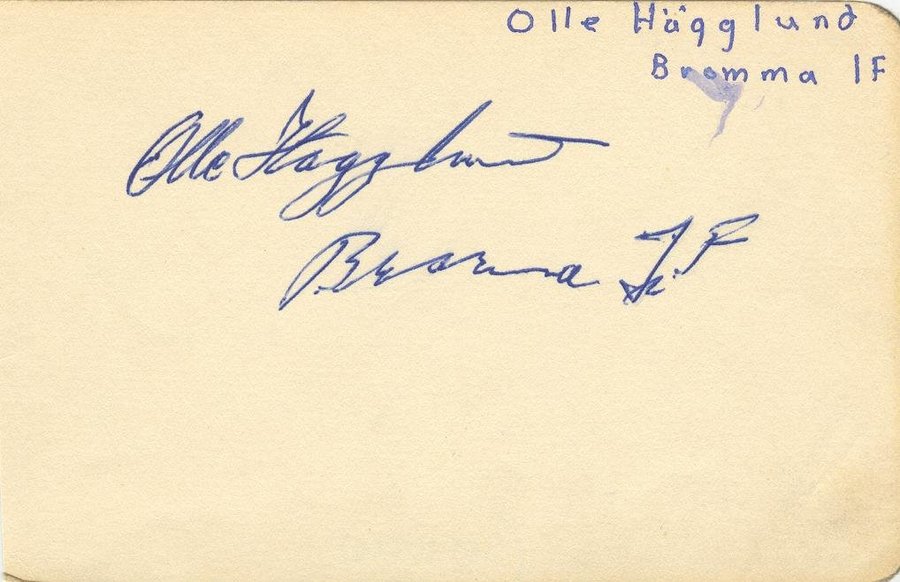 Olle Hägglund
Bromma IF
Olle Hägglund
Bromma I.F.